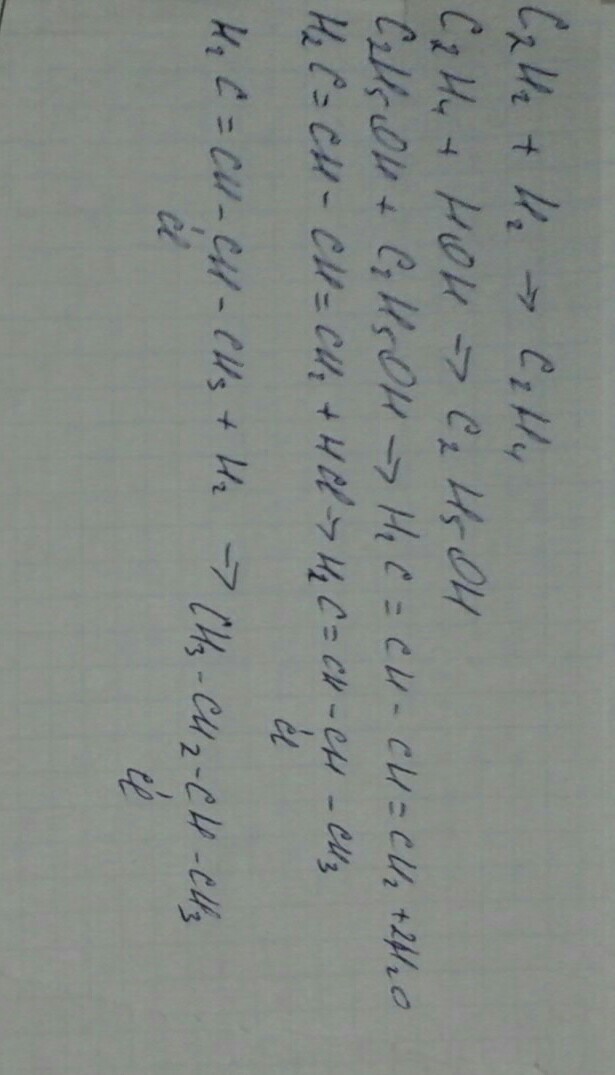 C₂H₂ + H₂ → C₂H₄
C₂H₄ + HOH → C₂H₅OH
C₂H₅OH + C₂H₅OH → H₂C = CH - CH = CH₂ + 2H₂O
H₂C = CH - CH = CH₂ + HCl → H₂C = CH - CH - CH₃
Cl
H₂C = CH - CH - CH₃ + H₂ → CH₃ - CH₂ - CH - CH₃
Cl Cl